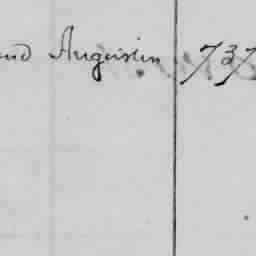 und Augustin 737